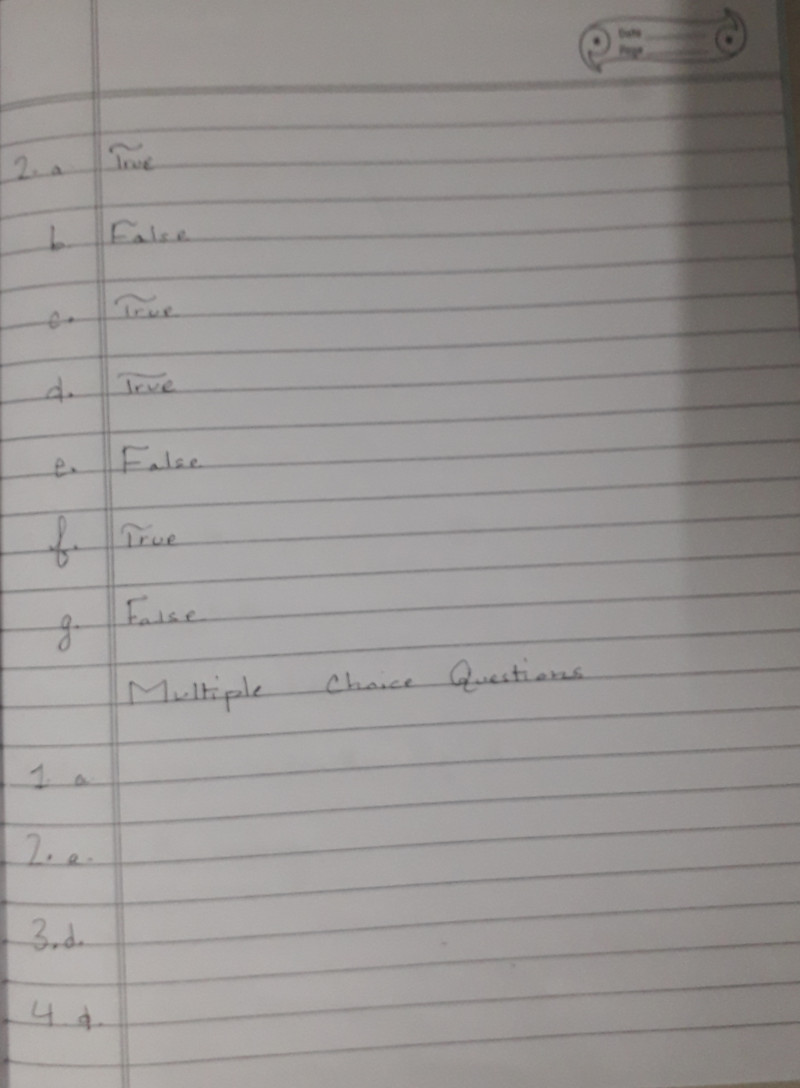 Date
Page
2. a True
b. False
c. True
d. True
e. False
f. True
g. False
Multiple Choice Questions
1. a
2. e.
3. d.
4. d.